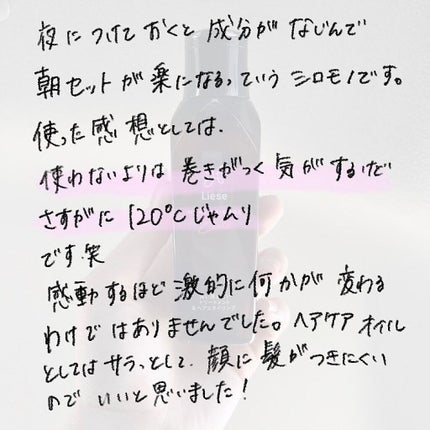 夜につけておくと成分がなじんで
朝セットが楽になるっていうシロモノです。
使った感想としては、
使わないよりは巻きがつく気がするけど
さすがに120℃じゃムリ
です笑
感動するほど激的に何かが変わる
わけではありませんでした。ヘアケアオイル
としてはサラっとして、顔に髪がつきにくい
のでいいと思いました！
Liese